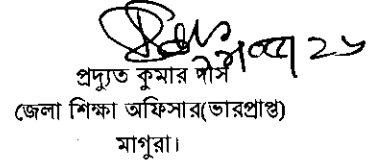 প্রদ্যুত কুমার দাস
জেলা শিক্ষা অফিসার(ভারপ্রাপ্ত)
মাগুরা।